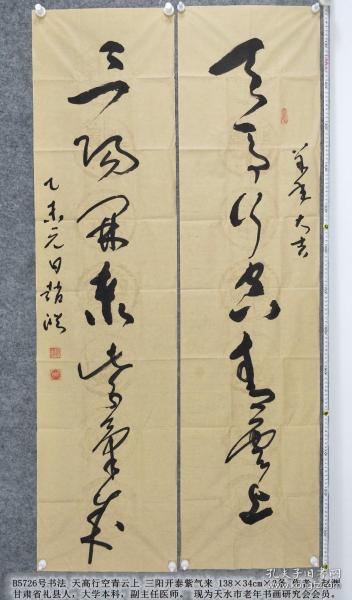 羊年大吉
天馬行空青雲上
三陽開泰紫氣來
乙未元日趙
B5726号书法 天高行空青云上 三阳开泰紫气来 138×34cm×2张 作者：赵
甘肃省礼县人，大学本科，副主任医师。 现为天水市老年书画研究会会员。
孔夫子旧书网